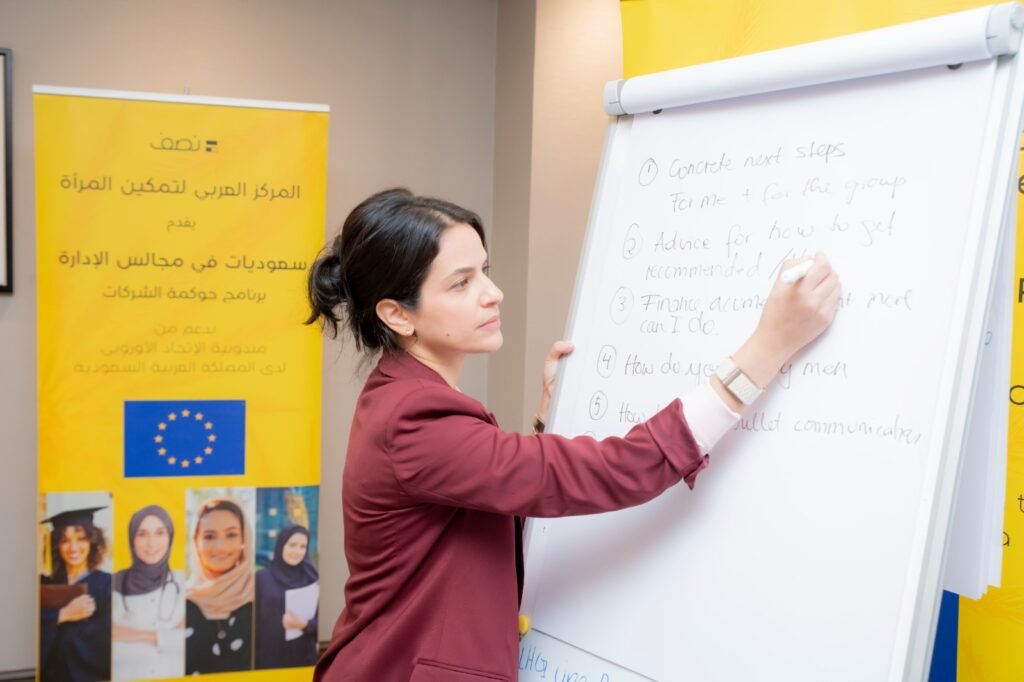 نصف
المركز العربي لتمكين المرأة
يقدم
سعوديات في مجالس الإدارة
برنامج حوكمة الشركات
بدعم من
مندوبية الإتحاد الأوروبي
لدى المملكة العربية السعودية
① Concrete next steps
For me + for the group
② Advice for how to get
recommended /
③ Finance more
can I do.
④ How do men
⑤ bullet communication